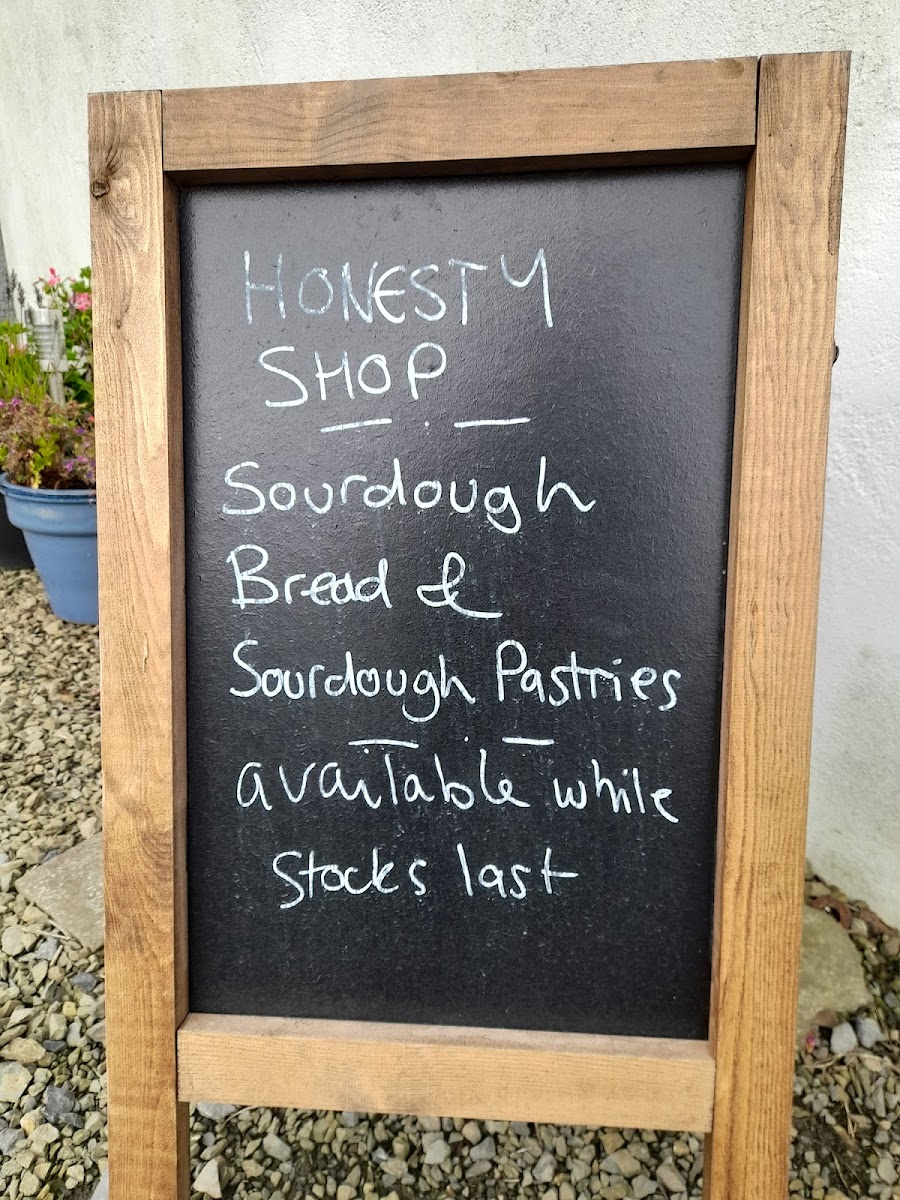 HONESTY
SHOP
Sourdough
Bread &
Sourdough Pastries
available while
Stocks last